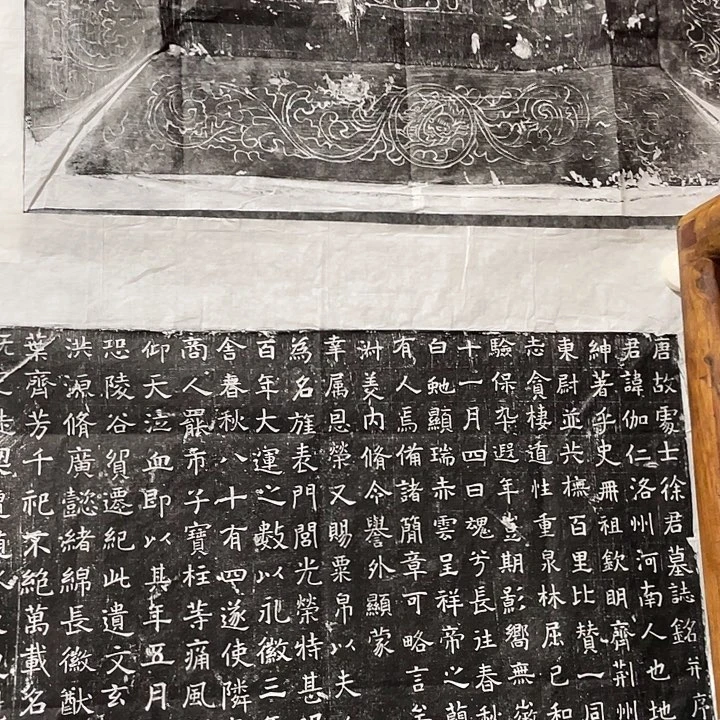 唐故處士徐君墓誌銘并序
君諱伽仁洛州河南人也地
紳著乎史冊祖欽明齊荆州
東尉並共撫百里比贊一同
志貪棲道性重泉林屈己和
驗保尒遐年豈期影嚮無
十一月四日魂兮長往春秋
白虵顯瑞赤雲呈祥帝之
有人焉備諸簡章可略言
洲美內脩令譽外顯蒙
辜属恩榮又賜粟帛以夫
為名旌表門閭光榮特甚
百年大運之數以永徽三年
舍春秋八十有四遂使隣
商人罷市子寶柱等痛風
仰天泣血即以其年五月
恐陵谷貿遷紀此遺文玄
洪源脩廣懿緒綿長徽猷
葉齊芳千祀不絕萬載名